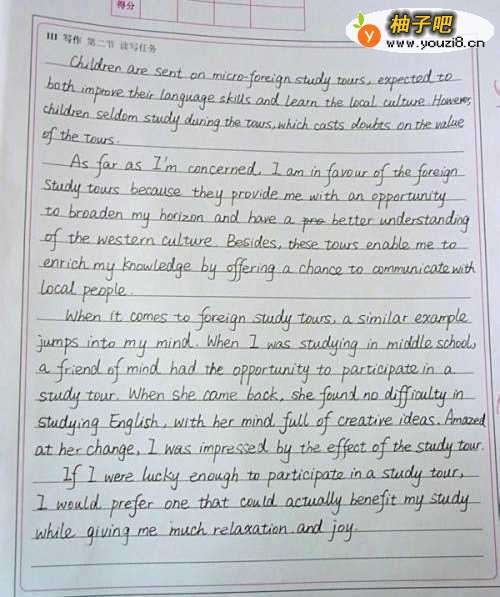 得分
柚子吧
www.youzi8.cn
III 写作 第二节 读写任务
Children are sent on micro-foreign study tours, expected to
both improve their language skills and learn the local culture. However,
children seldom study during the tours, which casts doubts on the value
of the tours.
As far as I'm concerned, I am in favour of the foreign
study tours because they provide me with an opportunity
to broaden my horizon and have a better understanding
of the western culture. Besides, these tours enable me to
enrich my knowledge by offering a chance to communicate with
local people.
When it comes to foreign study tours, a similar example
jumps into my mind. When I was studying in middle school,
a friend of mind had the opportunity to participate in a
study tour. When she came back, she found no difficulty in
studying English, with her mind full of creative ideas. Amazed
at her change, I was impressed by the effect of the study tour.
If I were lucky enough to participate in a study tour,
I would prefer one that could actually benefit my study
while giving me much relaxation and joy.